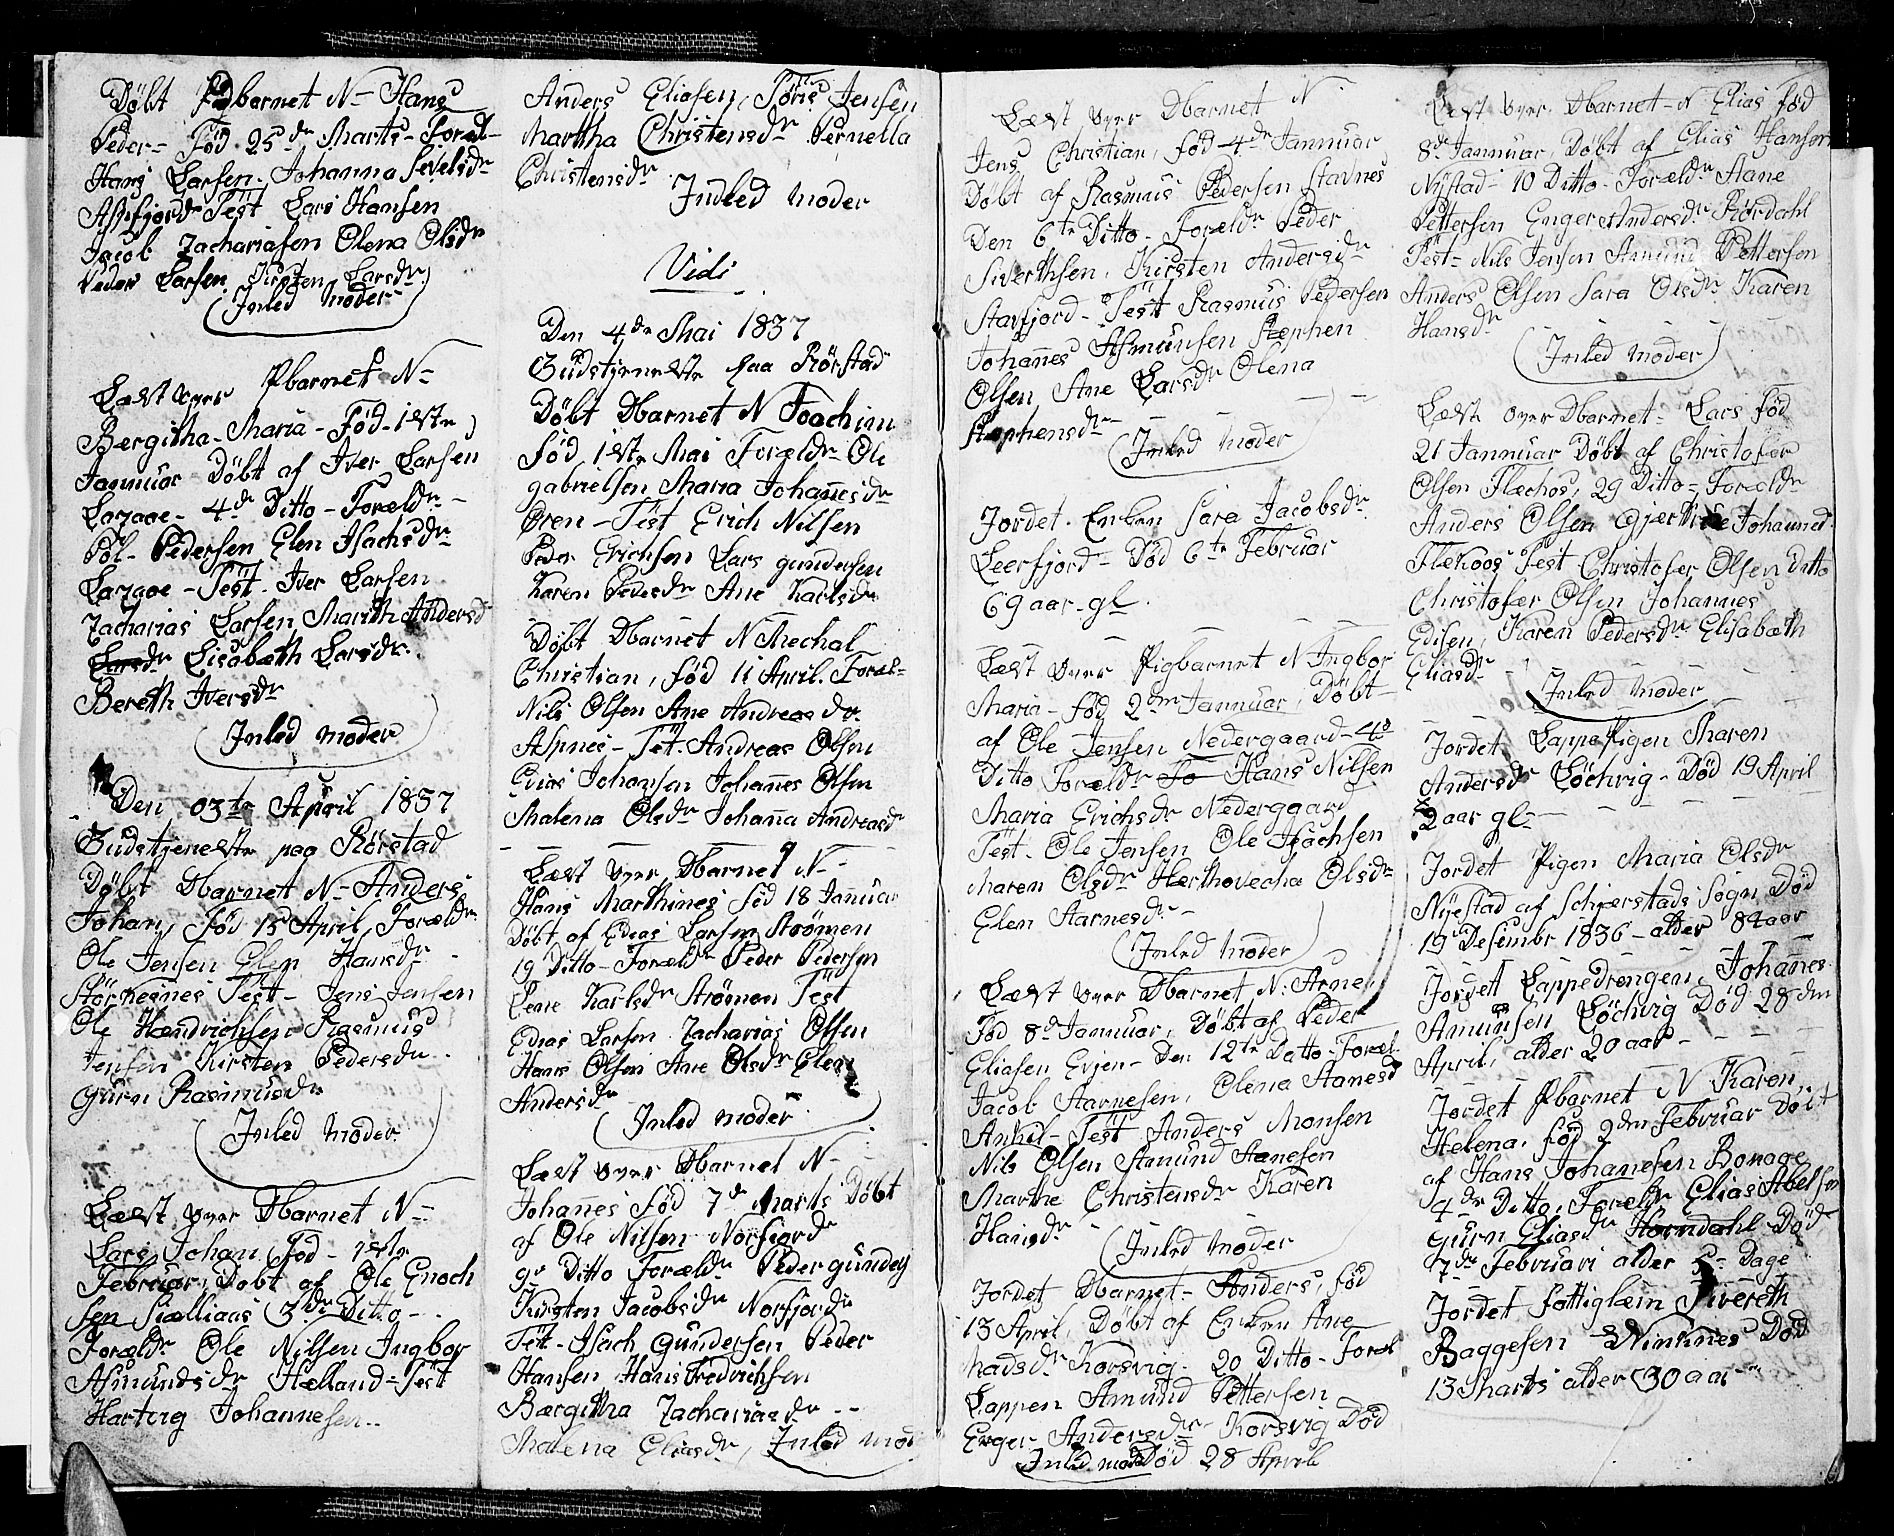 Døbt Dbarnet N- Hans
Peder- Fød 25de Marts- Foræl-
Hans Larsen. Johanna Sivelsdr
Aspfjord Test Lars Hansen
Jacob Zachariasen Olena Olsdr
Peder Larsen Kirsten Larsdr
Inled moder
Læst over Pbarnet N-
Bærgitha- Maria- Fød- 1ste
Jannuar Døbt af Iver Larsen
4de Ditto- Forældr-
Pol- Pedersen Elen Isachsdr
Test. Iver Larsen
Zacharias Larsen Marith Andersd
Larsdr Lisabæth Larsdr.
Bereth Iversdr
Inled moder
Den 03te April 1837
Gudstjeneste paa Rørstad
Døbt Dbarnet N- Anders
Johan, Fød 15 April, Forældr
Ole Jensen Elen Hansdr
Størkesnes Test- Jens Jensen
Ole Hændrichsen Rasmus
Jensen Kirsten Pedersdr
Gurn Rasmusdr
Inled moder
Læst over Dbarnet N-
Lars Johan Fød- 1ste
Februar, Døbt af Ole Enoch
sen 3de Ditto-
Forældr Ole Nilsen Ingbor
Asmundsdr Hælland- Test
Hartvig Johannesen..
Anders Eliasen, Tøris Jensen
Martha Christensdr Pernella
Christensdr
Inled moder
Vidi
Den 4de Mai 1837
Gudstjeneste paa Rørstad
Døbt Dbarnet N Joachim
fød 1ste Mai Forældr Ole
gabrielsen Maria Johañesdr
Øren- Test Erich Nilsen
Peder Erichsen Lars gundersen
Karen Pedersdr Ane Karlsdr
Døbt Dbarnet N Mechal
Christian, fød 11 April. Foræl-
Nils Olsen Ane Andreasdr.
Aspnes- Test- Andreas Olsen
Edias Johansen Johañes Olsen
Malena Olsdr Johaña Andreasdr
Læst over Dbarnet N-
Hans Marthines fød 18 Jañuar
Døbt af Edias Larsen Strømen
19 Ditto- Forældr Peder Pedersen
Lene Karlsdr Strømen Test
Edias Larsen Zacharias Olsen
Hans Olsen Ane Olsdr Elen
Andersdr
Inled moder
Læst over Dbarnet N-
Johañes fød 7de Marts Døbt
af Ole Nilsen Norfjord
9de Ditto Forældr Peder gunders
Kirsten Jacobsdr Norfjord
Test- Isach gundersen Peder
Hansen Hans Fredrichsen
Bærgitha Zachariasdr--
Malena Eliasdr, Inled mod
Læst over Dbarnet N
Jens Christian, fød 4de Jannuar
Døbt af Rasmus Pedersen Stavnes
Den 6te Ditto- Forældr Peder
Siverthsen, Kirsten Andersdr
Stavfjord- Test Rasmus Pedersen
Johañes Asmunsen Stephen
Olsen Ane Larsdr Olena
Stephensdr
Inled moder
Jordet. Enken Sara Jacobsdr
Leerfjord- Død 6te Februar
69 aar- gl.
Læst over Pigbarnet N Ingbor
Maria- fød 2den Jannuar, Døbt
af Ole Jensen Nedergaard- 4de
Ditto Forældr Fo Hans Nilsen
Maria Erichsdr Nedergaard
Test. Ole Jensen Ole Isachsen
Maren Olsdr Hærthovecha Olsdr
Elen Starnesdr-
Inled moder
Læst over Dbarnet N: Arne
Fød 8de Jannuar, Døbt af Peder
Eliasen Evjen- Den 12te Datto- Foræl
Jacob Starnesen, Olena Stanesd
Ankil- Test Anders Monsen
Nils Olsen Amund Stanesen
Marthe Christensdr Karen
Hansdr
Inled moder
Jordet Dbarnet- Anders, fød
13 April, Døbt af Enken Ane
Madsdr Korsvig- 20 Ditto- Foræl
Lappen Amund Pettersen
Enger Andersdr Korsvig Død
Inled moder Død 28 April
Læst over Dbarnet- N Elias fød
8de Jannuar, Døbt af Elias Hansen
Nystad- 10 Ditto- Forældr Aane
Pettersen Enger Andersdr Rørdahl
Test- Nils Jensen Amund Pettersen
Anders Olsen Sara Olsdr Karen
Hansdr
Inled moder
Læst over Dbarnet- Lars fød
21 Jannuar Døbt af Christofær
Olsen Flæchos, 29 Ditto- Forældr
Anders Olsen Johannesd
Flækoos Test Christofer Olsen Ditto
Christofær Olsen Johannes
Edisen, Karen Pedersdr Elisabæth
Eliasdr
Inled moder
Jordet Lappe Pigen Maren
Andersdr Løchvig- Død 19 April
2 aar gl-
Jordet Pigen Maria Olsdr
Nyestad af Schjærstads Sogn Død
19de Desembr 1836- alder 84 aar
Jordet Lappedrengen, Johañes
Amunsen Løchvig Død 28den
April, alder 20 aar-
Jordet Pbarnet N Karen
Helena. fød 2den Februar Døbt
af Hans Johanesen Bonage
4de Ditto, Forældr Elias Abelsen
Gurn Eliasd Horndahl Død
7de Februari alder 5- Dage
Jordet Fattiglæm Siverth
Baggesen Død
13 Marts alder 30 aar